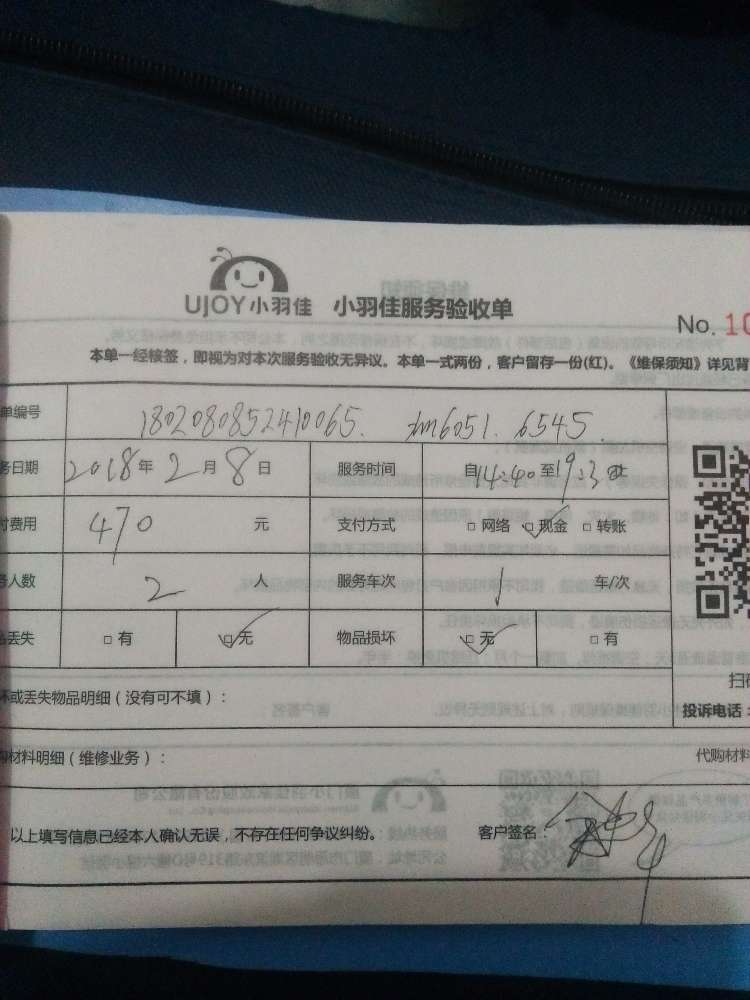 UJOY小羽佳 小羽佳服务验收单
No. 10
本单一经核签，即视为对本次服务验收无异议。本单一式两份，客户留存一份(红)。《维保须知》详见背
单编号 180208085241​0065. 6051. 6545
务日期 2018年 2月 8日 服务时间 自14:40至19:30
付费用 470 元 支付方式 □网络 □现金 □转账
务人数 2 人 服务车次 1 车/次
丢失 □有 □无 物品损坏 □无 □有
坏或丢失物品明细（没有可不填）：
扫
投诉电话：
购材料明细（维修业务）：
代购材料
以上填写信息已经本人确认无误，不存在任何争议纠纷。 客户签名：